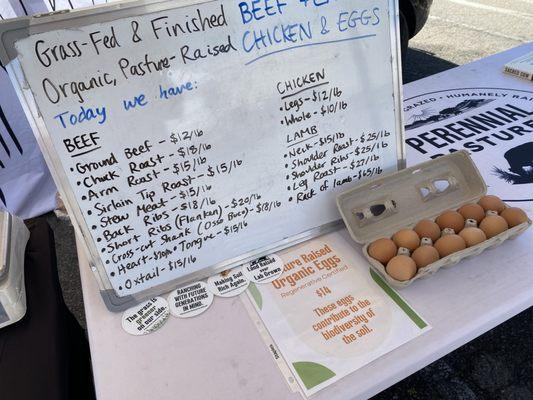 Grass-Fed & Finished BEEF
Organic, Pasture-Raised CHICKEN & EGGS
Today we have:
BEEF
• Ground Beef - $12/lb
• Chuck Roast - $18/lb
• Arm Roast - $15/lb
• Sirloin Tip Roast - $15/lb
• Stew Meat - $15/lb
• Back Ribs - $18/lb
• Short Ribs (Flanken) - $20/lb
• Cross-cut Shank (Osso Buco) - $18/lb
• Heart • Tongue - $15/lb
• Oxtail - $15/lb
CHICKEN
• Legs - $12/lb
• Whole - $10/lb
LAMB
• Neck - $15/lb
• Shoulder Roast - $25/lb
• Shoulder Ribs - $25/lb
• Leg Roast - $27/lb
• Rack of lamb - $65/lb
The grass is
greener
on our side.
RANCHING WITH
FUTURE
GENERATIONS
IN MIND.
Making Soil
Rich Again
Land Raised
Lab Grown
Pasture Raised
Organic Eggs
Regenerative Certified
$14
These eggs
contribute to the
biodiversity of
the soil.
GRAZED. HUMANELY RAISED
PERENNIAL
PASTURE